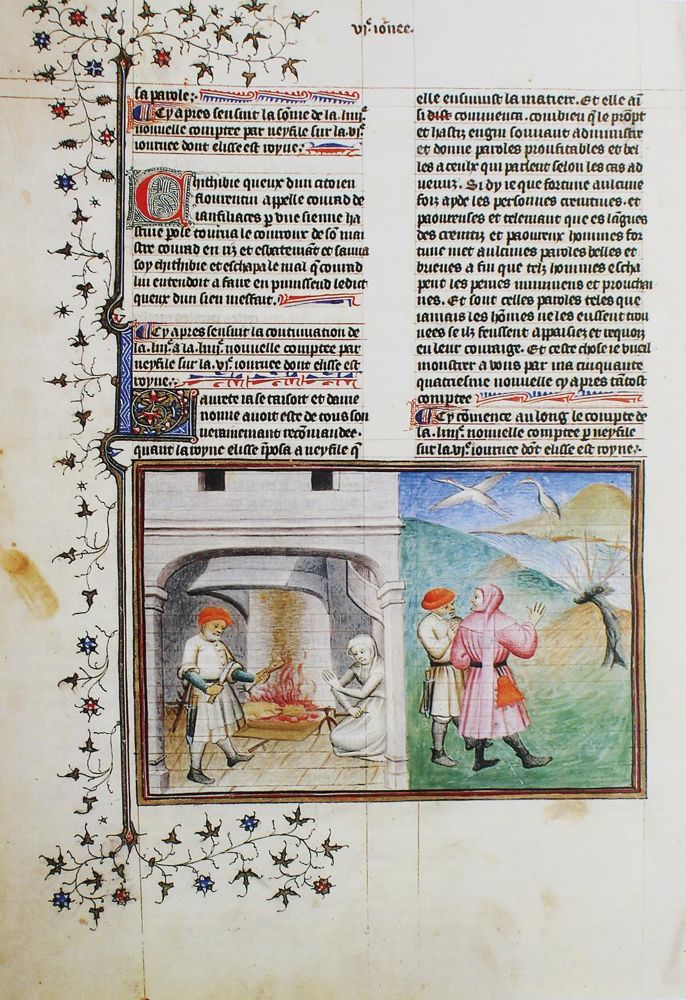 vjͤ. ioᷠnee.
sa parole:
Cy apres sensuit la sōme de la .iiijͤ.
nouvelle comptee par neyfile sur la vjͤ
iournee dont elisse est royne:
Chithibie queux dun citoien
flourentin appelle conrad de
ianfiliaces p vne sienne ha
stiue pole tourna le courroux de sō mai
stre conrad en riz et esbatemāt et sauua
soy chithibie et eschapa le mal q̄ conrad
lui entendoit a faire en punissend ledict
queux dun sien meffait.
Cy apres sensuit la continuation de
la .iijͤ. a la .iiijͤ. nouvelle comptee par
neyfile sur la vjͤ iournee dont elisse est
royne:
Laurete ia se taisoit et dame
nonne auoit este de tous son
uerainement recōmandee.
quant la royne elisse īposa a neyfile q̄
elle ensuiuist la matiere. Et elle aī
si dist commenca. combien q̄ le prōpt
et hastif engin souuant administre
et donne paroles proufitables et bel
les a ceulx qui parlent selon les cas ad
uenuz. Si dy ie que fortune aulcune
foiz ayde les personnes cremtiues. et
paoureuses et telemant que es lāgues
des cremtiz et paoureux hommes for
tune met aulcunes paroles belles et
brieues a fin que telz hommes escha
pent les peines iminens et prouchai
nes. Et sont celles paroles teles que
iamais les hōmes ne les eussent trou
uees se ilz feussent appaisiez et requoiz
en leur couraige. Et ceste chose ie vueil
monstrer a vous par ma cinquante
quatriesme nouvelle cy apres tātost
comptee
Cy cōmence au long le compte de
la .iiijͤ. nouvelle comptee p neyfile
sur la .vjͤ. iournee dōt elisse est royne: